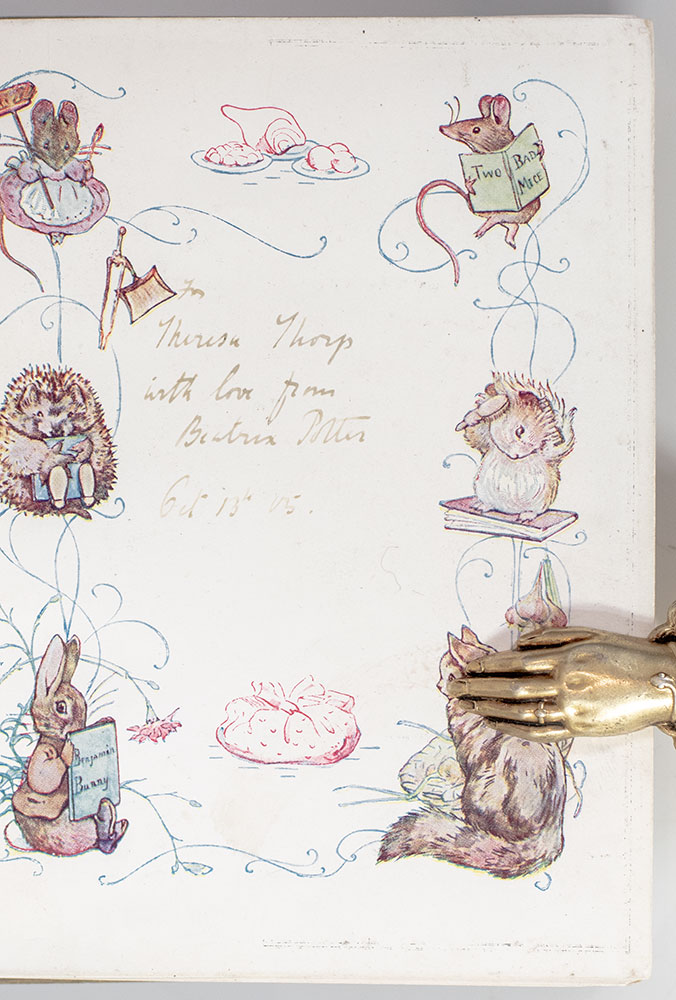 Two Bad
Mice
For
Theresa Thorp
with love from
Beatrix Potter
Oct 13th 05.
Benjamin
Bunny